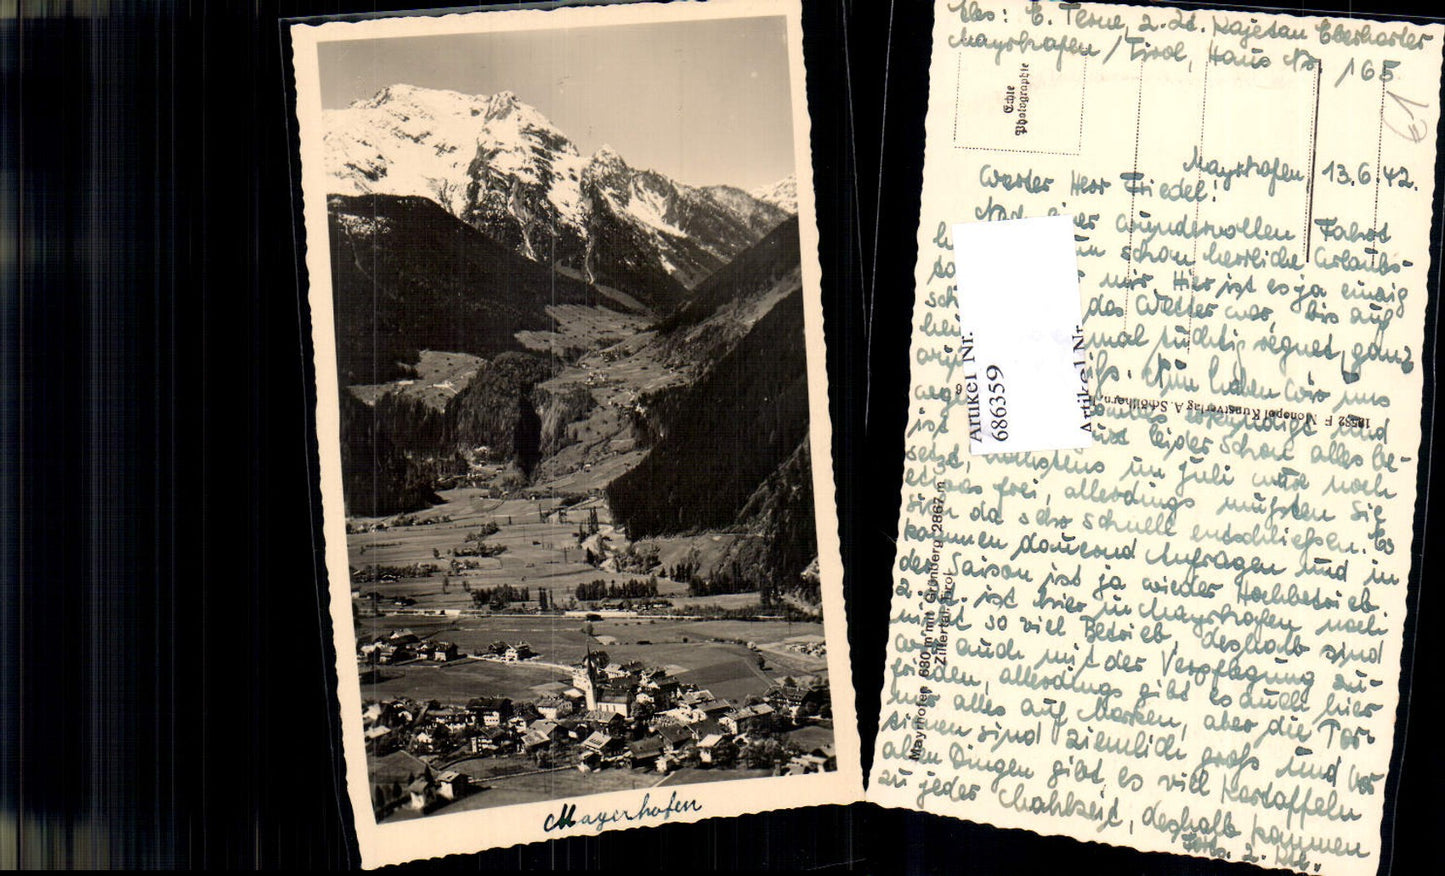 Mayerhofen
Abs: E. Terne, z. Zt. Kajetan Eberharter
Mayrhofen / Tirol, Haus Nr 165
Echte
Photographie
€1
Mayrhofen, 13.6.42.
Werter Herr Friedel!
wundervollen Fahrt
schon herrliche Urlaubs-
mir. Hier ist es ja einzig
das Wetter war, bis auf
mal tüchtig regnet, ganz
Nun haben wir uns
erkundigt und
ist leider schon alles be-
setzt, höchstens im Juli wäre noch
etwas frei, allerdings müßten Sie
sich da sehr schnell entschließen. Es
kommen dauernd Anfragen und in
der Saison ist ja wieder Hochbetrieb.
Z. Zt. ist hier in Mayrhofen noch
nicht so viel Betrieb, deshalb sind
wir auch mit der Verpflegung zu-
frieden, allerdings gibt es auch hier
nur alles auf Marken, aber die Por-
tionen sind ziemlich groß und vor
allen Dingen gibt es viel Kartoffeln
zu jeder Mahlzeit, deshalb kommen
Forts. 2. Kte.
Artikel Nr.
686359
Artikel Nr.
18582 F Monopol Kunstverlag A. Schöllhorn,
Mayrhofen 630 m mit Grünberg 2867 m
Zillertal Tirol